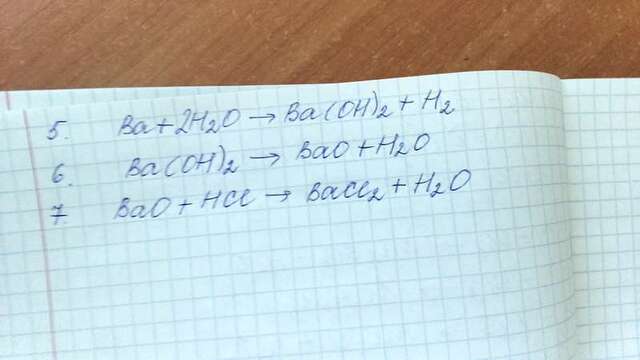 5. Ba+2H₂O → Ba(OH)₂ + H₂
6. Ba(OH)₂ → BaO + H₂O
7. BaO + HCl → BaCl₂ + H₂O